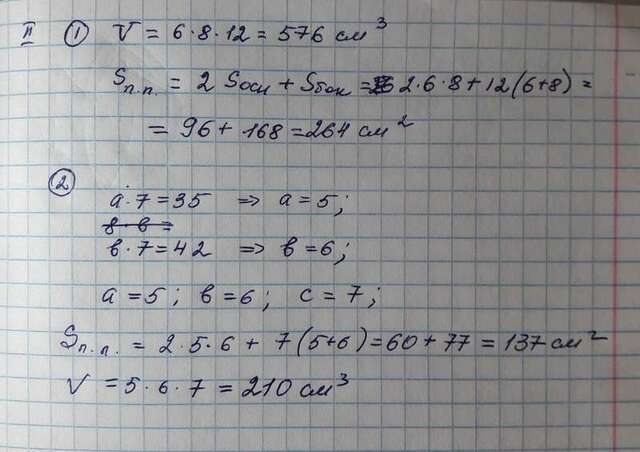 II ① V = 6·8·12 = 576 см³
Sп.п. = 2 Sосн + Sбок = 2·6·8 + 12(6+8) =
= 96 + 168 = 264 см²
② a·7=35 => a=5;
в·6=
в·7=42 => в=6;
a=5; в=6; c=7;
Sп.п. = 2·5·6 + 7(5+6) = 60 + 77 = 137 см²
V = 5·6·7 = 210 см³